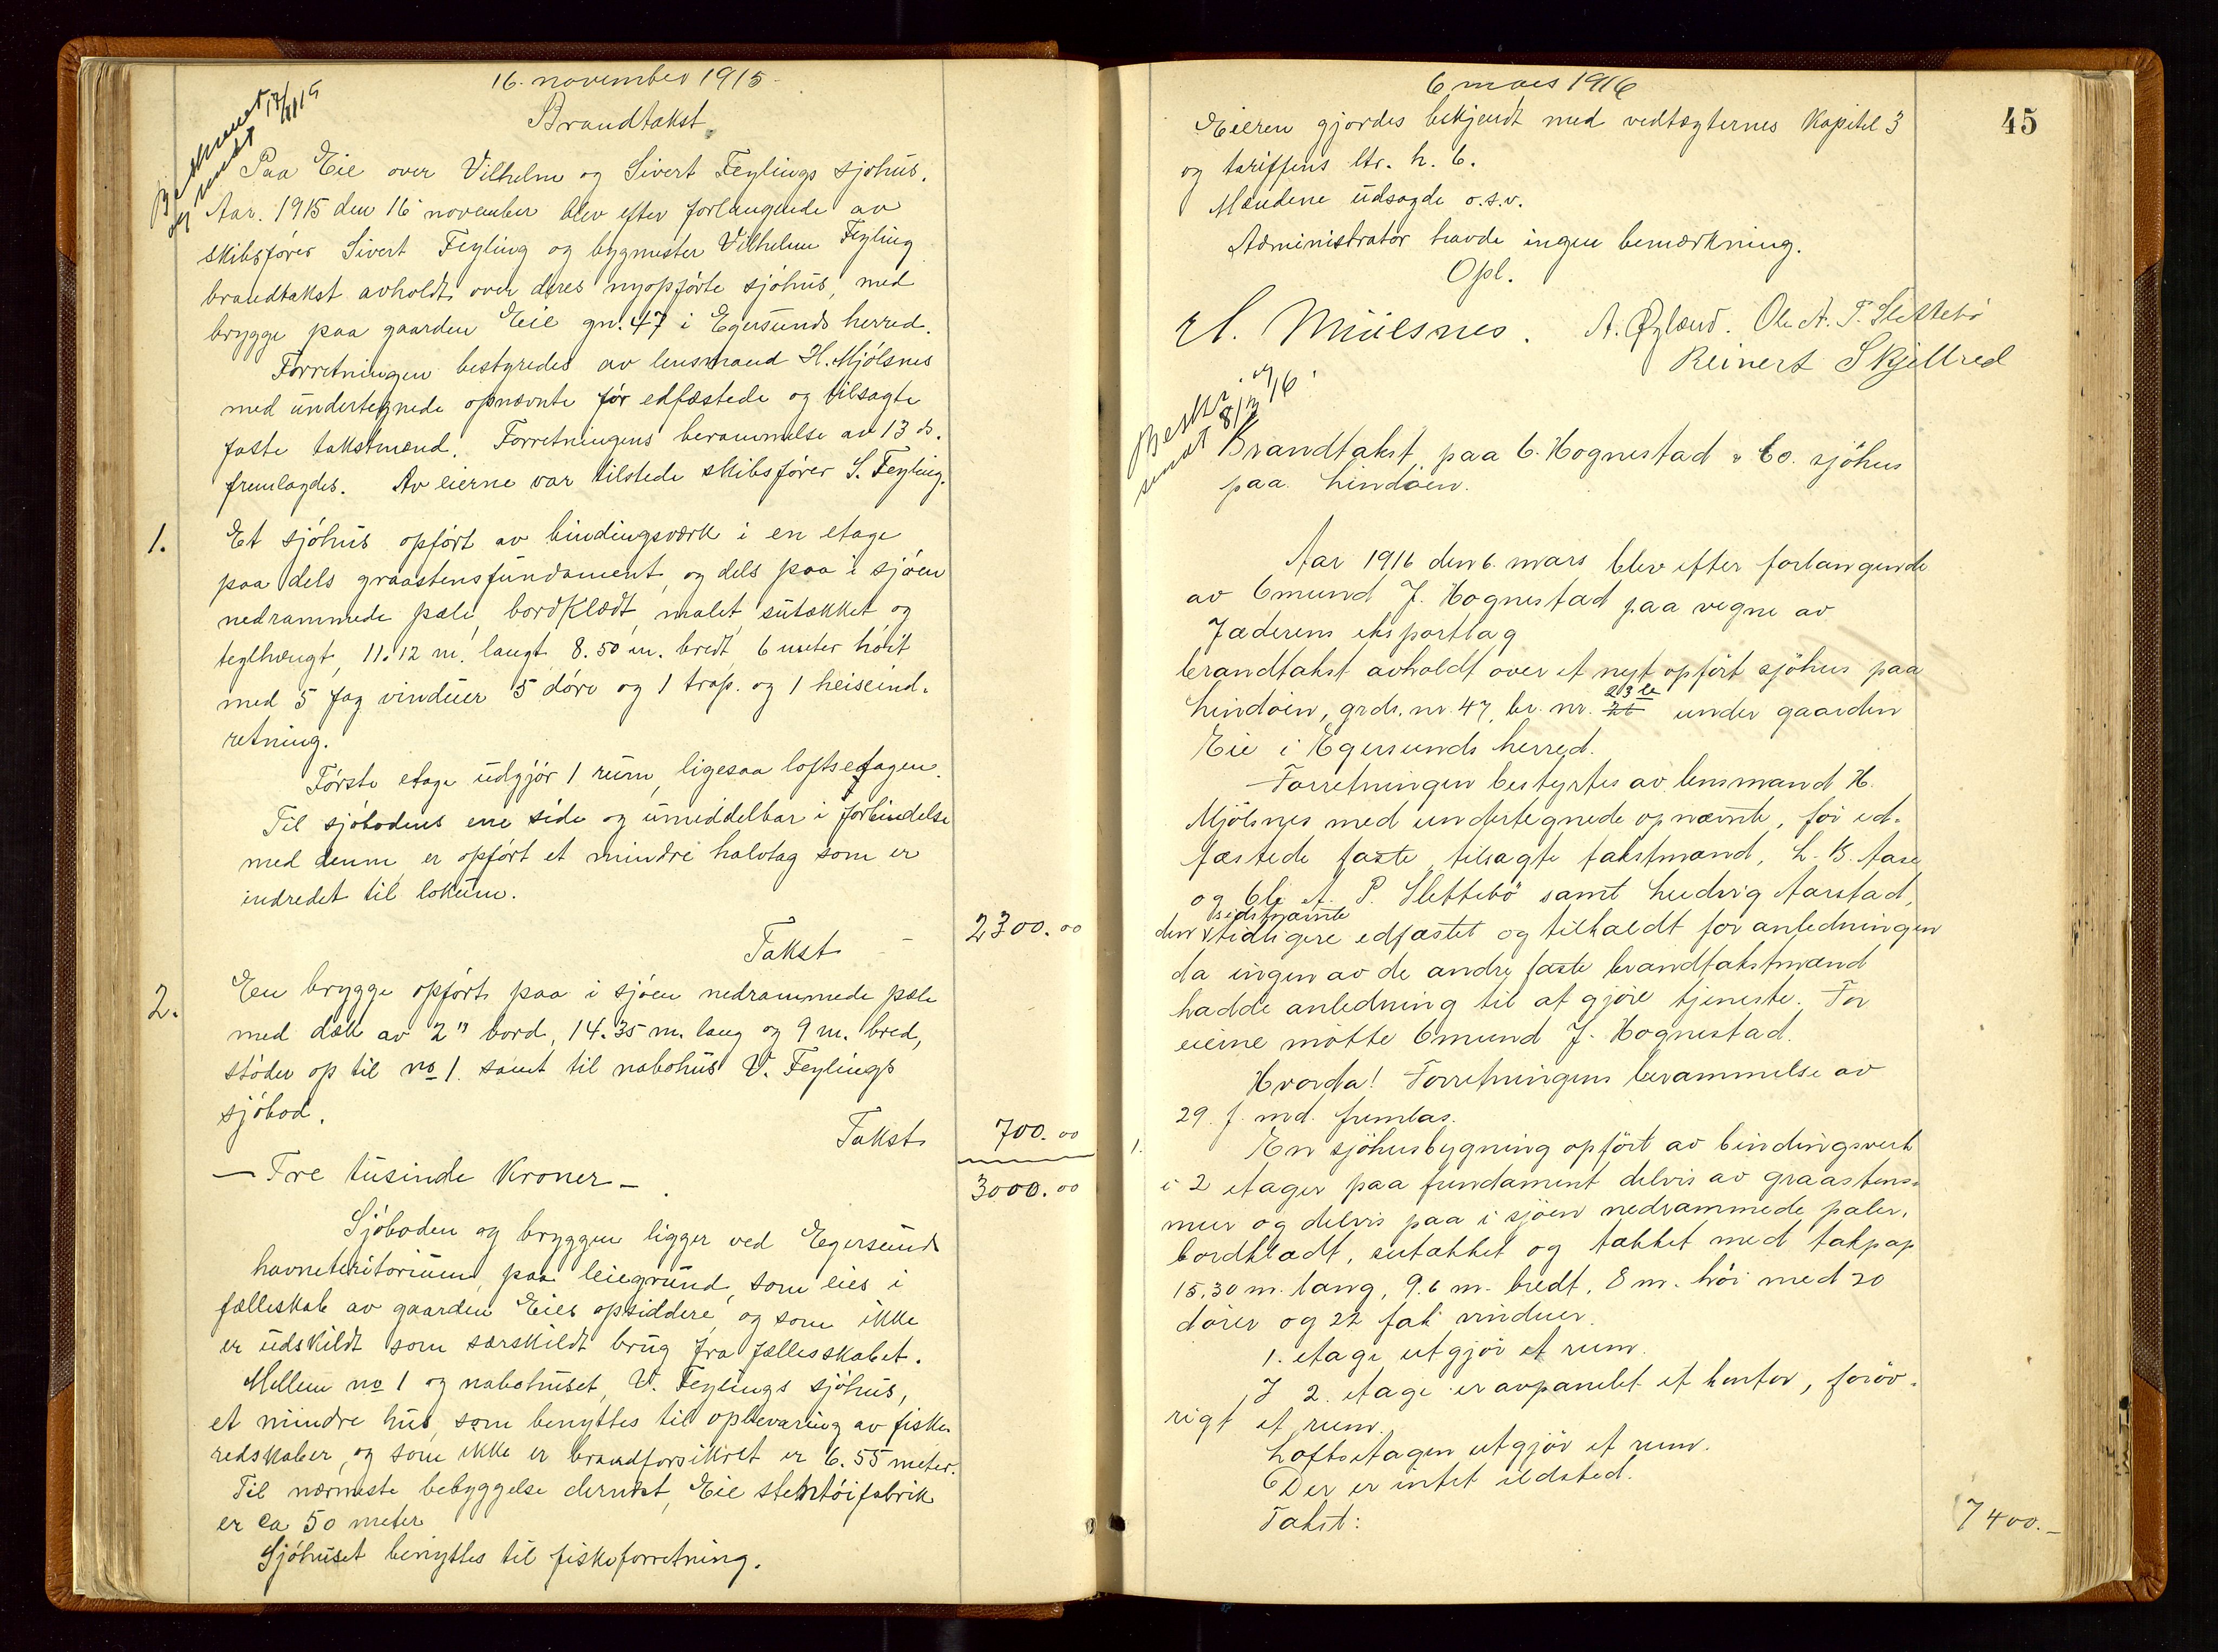 16. november 1915
Brandtakst
Beskrevet 17/11 15
og sendt
Paa Eie over Vilhelm og Sivert Feylings sjøhus.
Aar. 1915 den 16 november blev efter forlangende av
skibsfører Sivert Feyling og bygmester Vilhelm Feyling
brandtakst avholdt over deres nyopførte sjøhus, med
brygge paa gaarden Eie gn. 47 i Egersunds herred.
Forretningen bestyredes av lensmand H. Mjølsnes
med undertegnede opnævnte før edfæstede og tilsagte
faste takstmænd. Forretningens berammelse av 13 ds.
fremlagdes. Av eierne var tilstede skibsfører S. Feyling.
1. Et sjøhus opført av bindingsværk i en etage
paa dels graastensfundament, og dels paa i sjøen
nedrammede pæle, bordklædt, malet, sutækket og
teglhængt, 11.12 m. langt, 8.50 m. bredt, 6 meter høit
med 5 fag vinduer 5 døre og 1 trap. og 1 heiseind-
retning.
Første etage udgjør 1 rum, ligesaa loftsetagen.
Til sjøbodens ene side og umiddelbar i forbindelse
med denne er opført et mindre halvtag som er
indredet til lokum.
Takst - 2300.00
2. En brygge opført paa i sjøen nedrammede pæle
med dæk av 2" bord, 14.35 m. lang og 9 m. bred,
støder op til no 1. samt til nabohus V. Feylings
sjøbod.
Takst 700.00
- Tre tusinde Kroner - 3000.00
Sjøboden og bryggen ligger ved Egersunds
havneteritorium, paa leiegrund, som eies i
fælleskab av gaarden Eies opsiddere, og som ikke
er udskildt som særskildt brug fra fællesskabet.
Mellem no 1 og nabohuset, V. Feylings sjøhus,
et mindre hus, som benyttes til opbevaring av fiske-
redskaber, og som ikke er brandforsikret er 6.55 meter.
Til nærmeste bebyggelse dernæst, Eie stentøifabrik
er ca 50 meter
Sjøhuset benyttes til fiskeforretning.
6 mars 1916
45
Eieren gjordes bekjendt med vedtægternes Kapitel 3
og tariffens ltr. h. 6.
Mændene udsagde o.s.v.
Administrator havde ingen bemærkning.
Opl.
H. Mjølsnes. A. Øgland. Ole A. P. Slettebø
Reinert Skjellred
Beskr. og
sendt 8/3 16.
Brandtakst paa O. Hognestad & Co. sjøhus
paa Lindøen.
Aar 1916 den 6. mars blev efter forlangende
av Omund J. Hognestad paa vegne av
Jæderens eksportlag
brandtakst avholdt over et nyt opført sjøhus paa
Lindøen, grds. nr. 47, br. nr. 23 under gaarden
Eie i Egersunds herred.
Forretningen bestyrtes av lensmand H.
Mjölsnes med undertegnede opnævnte, før ed-
fæstede faste, tilsagte takstmænd, L. B. Aase
og Ole A. P. Slettebö samt Ludvig Aarstad,
den sidstnævnte tidligere edfæstet og tilkaldt for anledningen
da ingen av de andre faste brandtakstmænd
hadde anledning til at gjøre tjeneste. For
eierne møtte Omund J. Hognestad.
Hvorda! Forretningens berammelse av
29. f. md. fremlas.
1. En sjöhusbygning opført av bindingsverk
i 2 etager paa fundament delvis av graastens-
mur og delvis paa i sjøen nedrammede pæler,
bordklædt, sutækket og tækket med takpap
15.30 m. lang, 9.6 m. bredt, 8 m. höi med 20
dører og 22 fak vinduer.
1. etage utgjør et rum.
I 2. etage er avpanelet et kontor, forøv-
rigt et rum.
Loftsetagen utgjør et rum.
Der er intet ildsted.
Takst: 7400.-